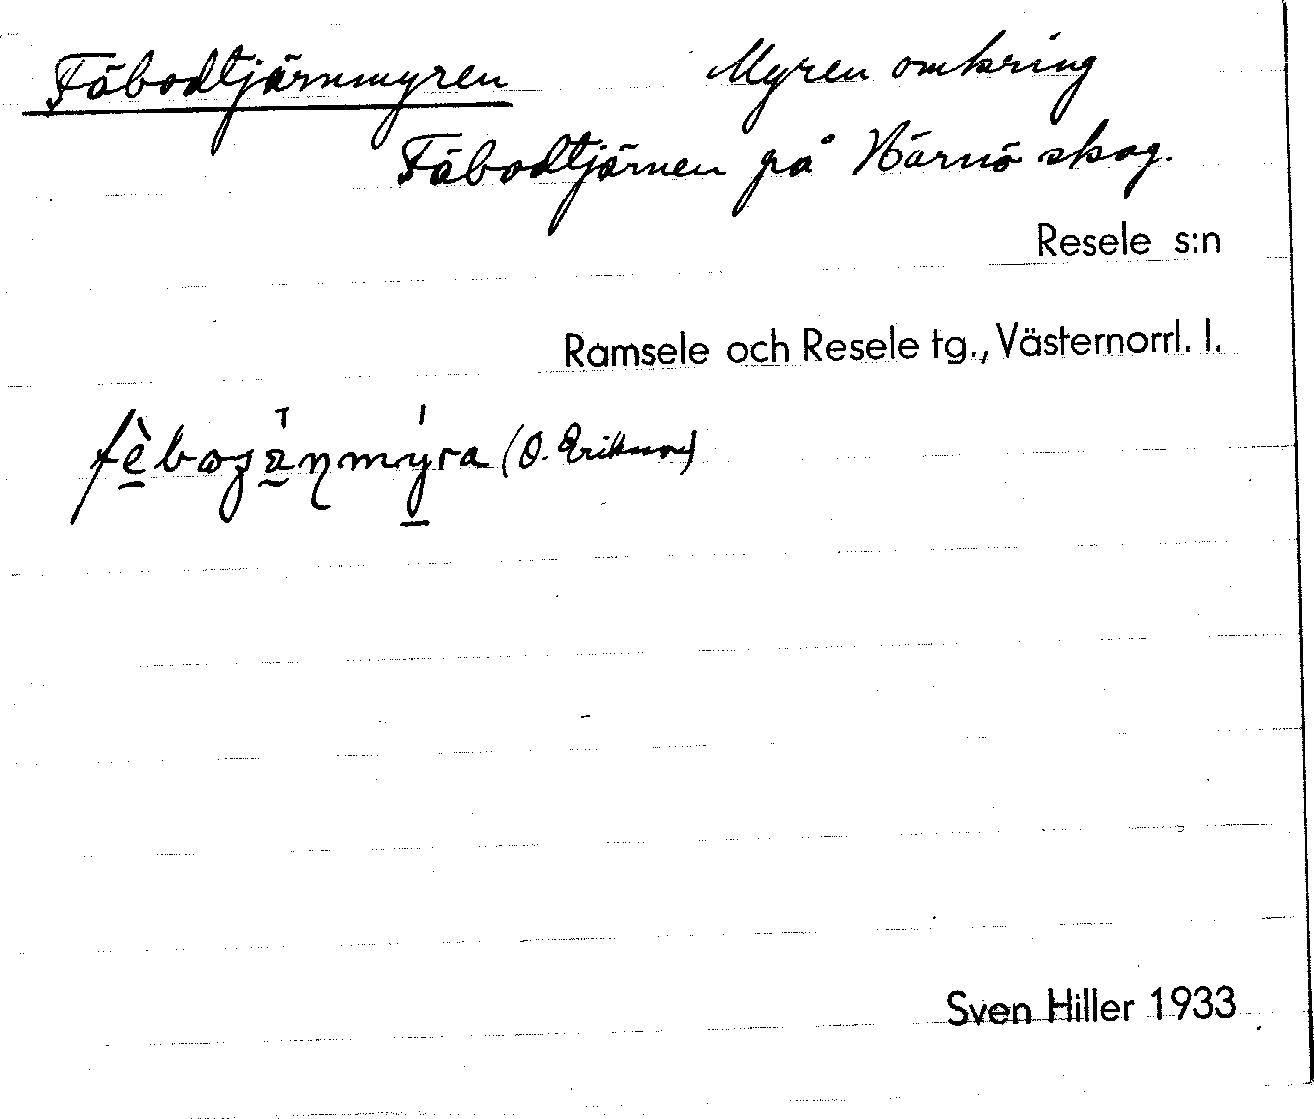 Fäbodtjärnmyren Myren omkring
Fäbodtjärnen på Härnö skog.
Resele s:n
Ramsele och Resele tg., Västernorrl. l.
(O. Erikson)
Sven Hiller 1933